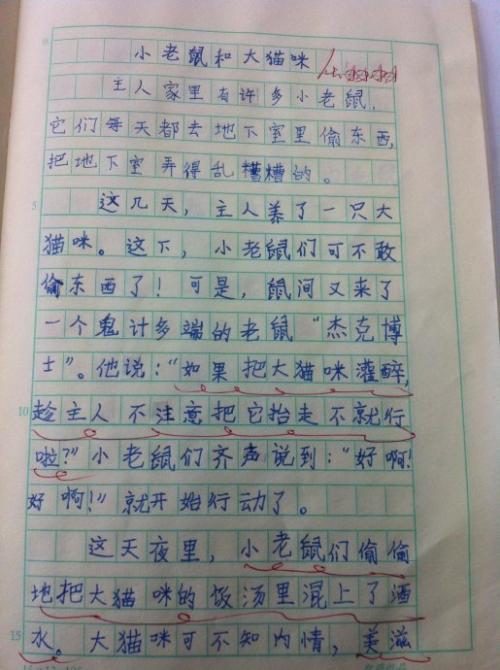 小老鼠和大猫咪
主人家里有许多小老鼠.
它们每天都去地下室里偷东西,
把地下室弄得乱糟糟的。
5
这几天，主人养了一只大
猫咪。这下，小老鼠们可不敢
偷东西了！可是，鼠河又来了
一个鬼计多端的老鼠“杰克博
士”。他说：“如果把大猫咪灌醉,
10
趁主人不注意把它抬走不就行
啦?”小老鼠们齐声说到：“好啊!
好啊!”就开始行动了。
这天夜里，小老鼠们偷偷
地把大猫咪的饭汤里混上了酒
15
水。大猫咪可不知内情，美滋